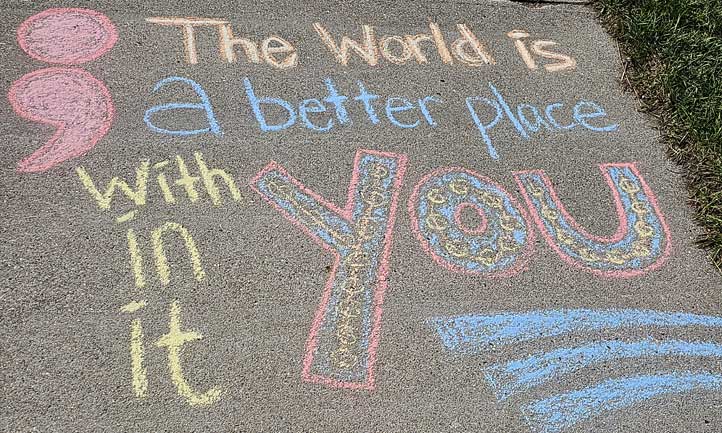 ; The World is
a better place
with YOU
in
it